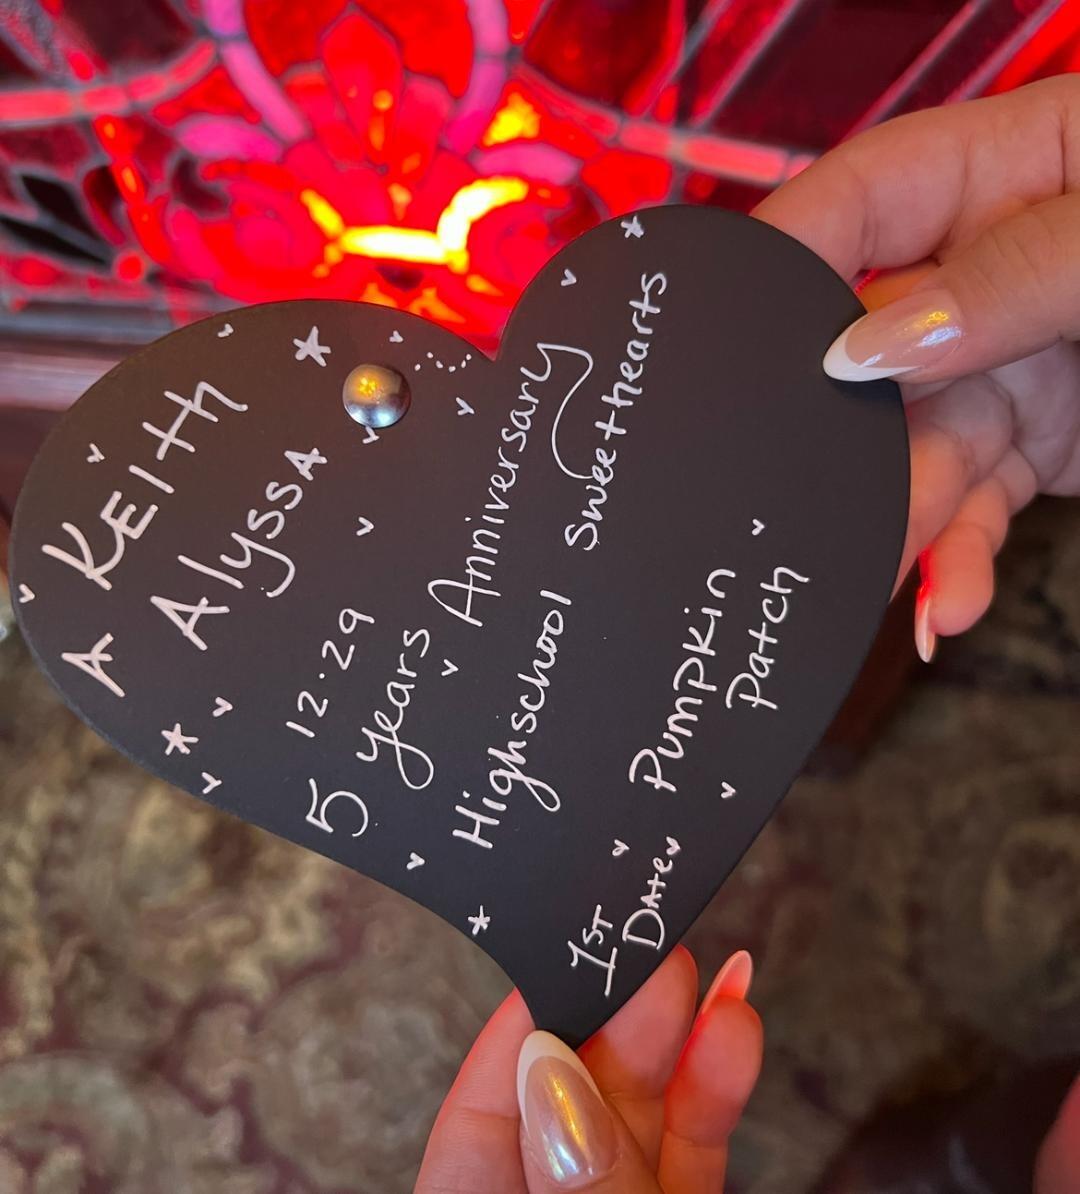 KEITH
A Alyssa
12.29
5 years Anniversary
Highschool sweethearts
1ST
Date
Pumpkin
Patch